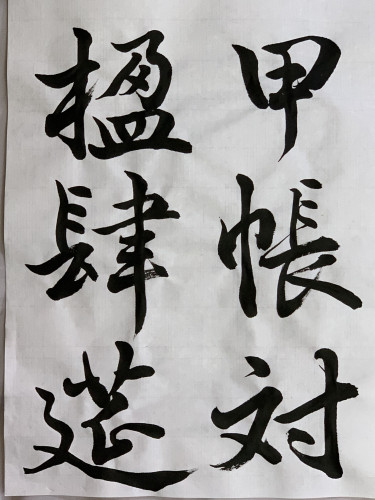 甲帳対
楹肆筵